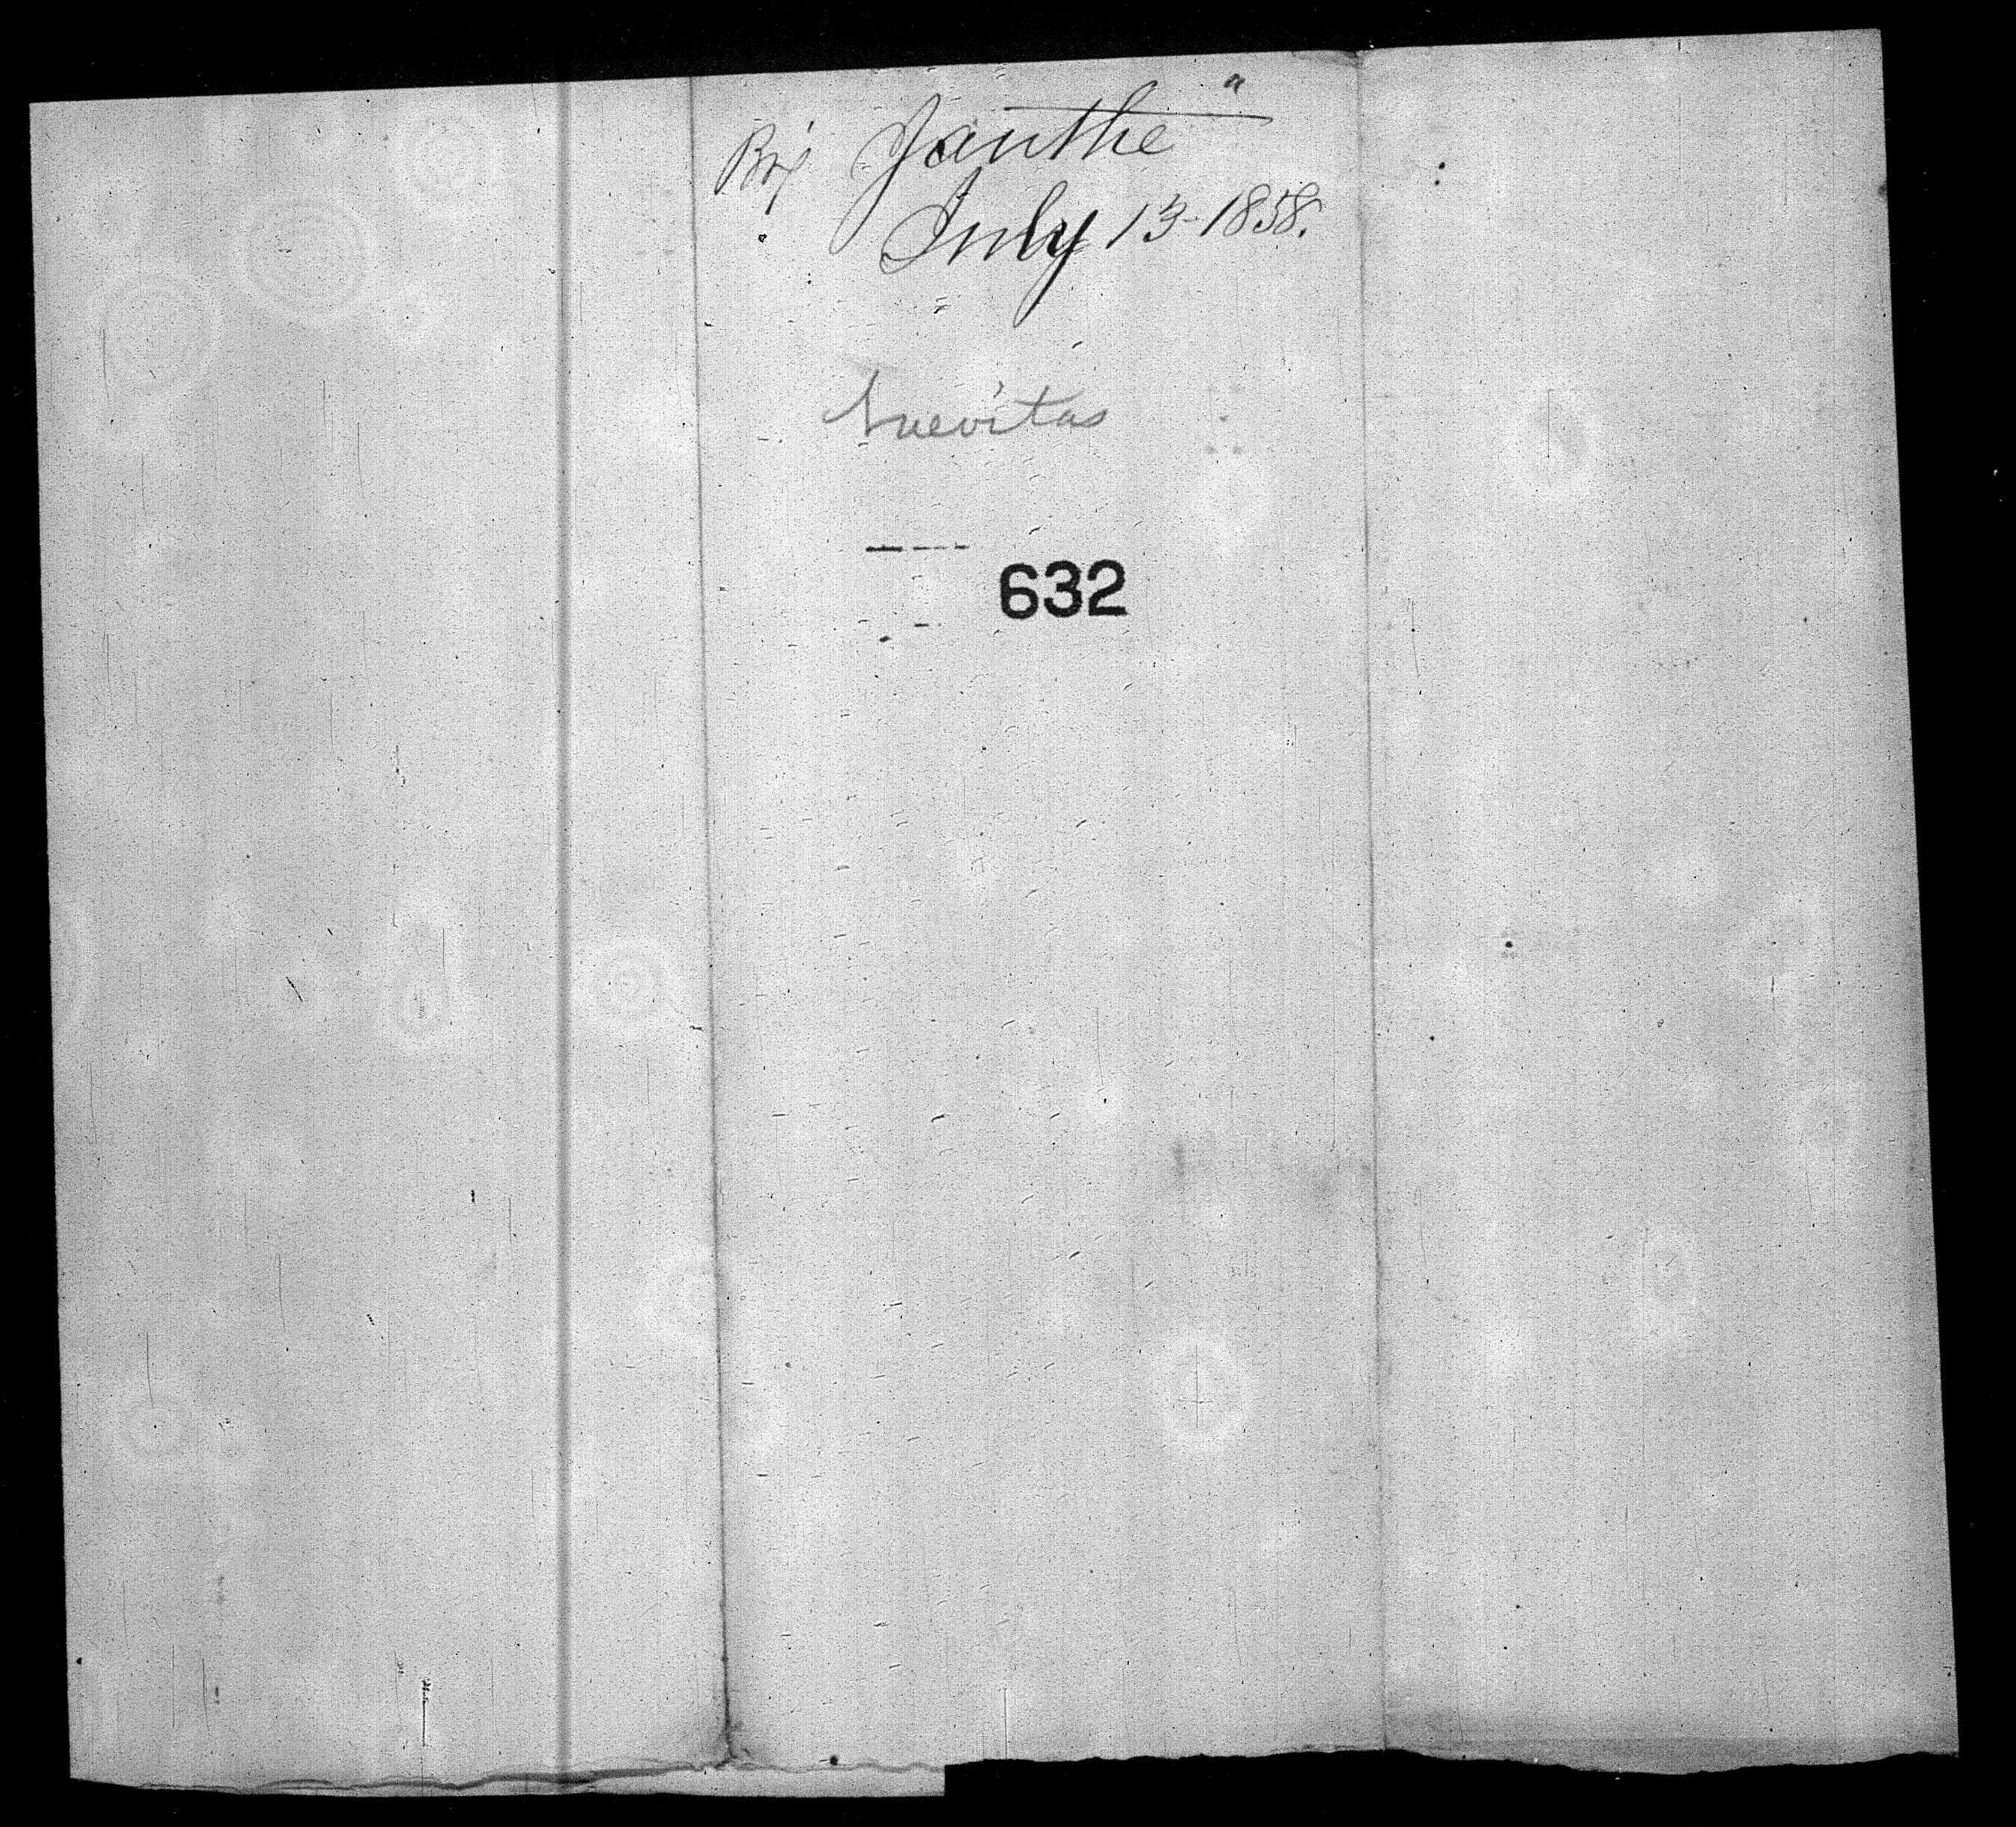 Brig Ianthe "
July 13-1858.
Nuevitas
632